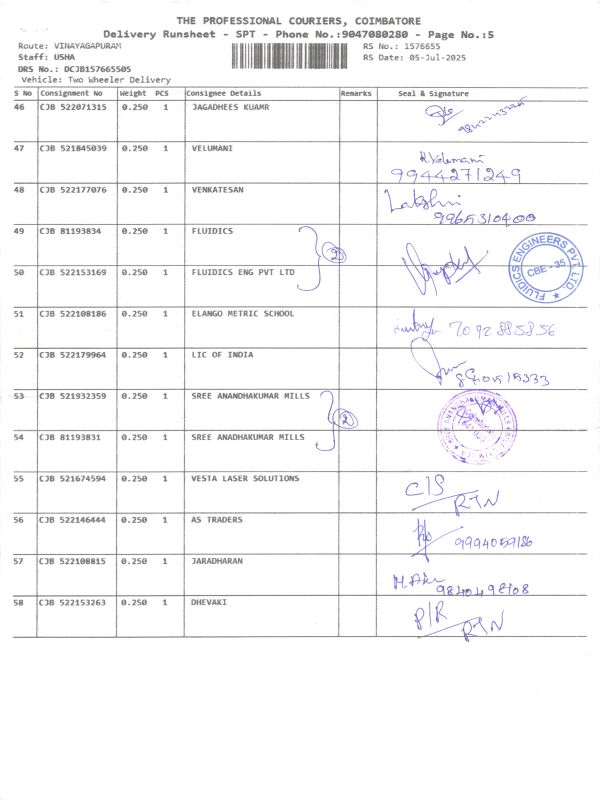 THE PROFESSIONAL COURIERS, COIMBATORE
Delivery Runsheet - SPT - Phone No.:9047080280 - Page No.:5
Route: VINAYAGAPURAM RS No.: 1576655
Staff: USHA RS Date: 05-Jul-2025
DRS No.: DCJB157665505
Vehicle: Two Wheeler Delivery
S No Consignment No Weight PCS Consignee Details Remarks Seal & Signature
46 CJB 522071315 0.250 1 JAGADHEES KUAMR
47 CJB 521845039 0.250 1 VELUMANI K.Velumani
9944271249
48 CJB 522177076 0.250 1 VENKATESAN Lakshmi
9965310400
49 CJB 81193834 0.250 1 FLUIDICS
2
FLUIDICS ENGINEERS PVT. LTD.
CBE - 35
50 CJB 522153169 0.250 1 FLUIDICS ENG PVT LTD
51 CJB 522108186 0.250 1 ELANGO METRIC SCHOOL
52 CJB 522179964 0.250 1 LIC OF INDIA
53 CJB 521932359 0.250 1 SREE ANANDHAKUMAR MILLS
2
54 CJB 81193831 0.250 1 SREE ANADHAKUMAR MILLS
55 CJB 521674594 0.250 1 VESTA LASER SOLUTIONS C/S
RTN
56 CJB 522146444 0.250 1 AS TRADERS 9994059186
57 CJB 522108815 0.250 1 JARADHARAN
58 CJB 522153263 0.250 1 DHEVAKI P/R
RTN